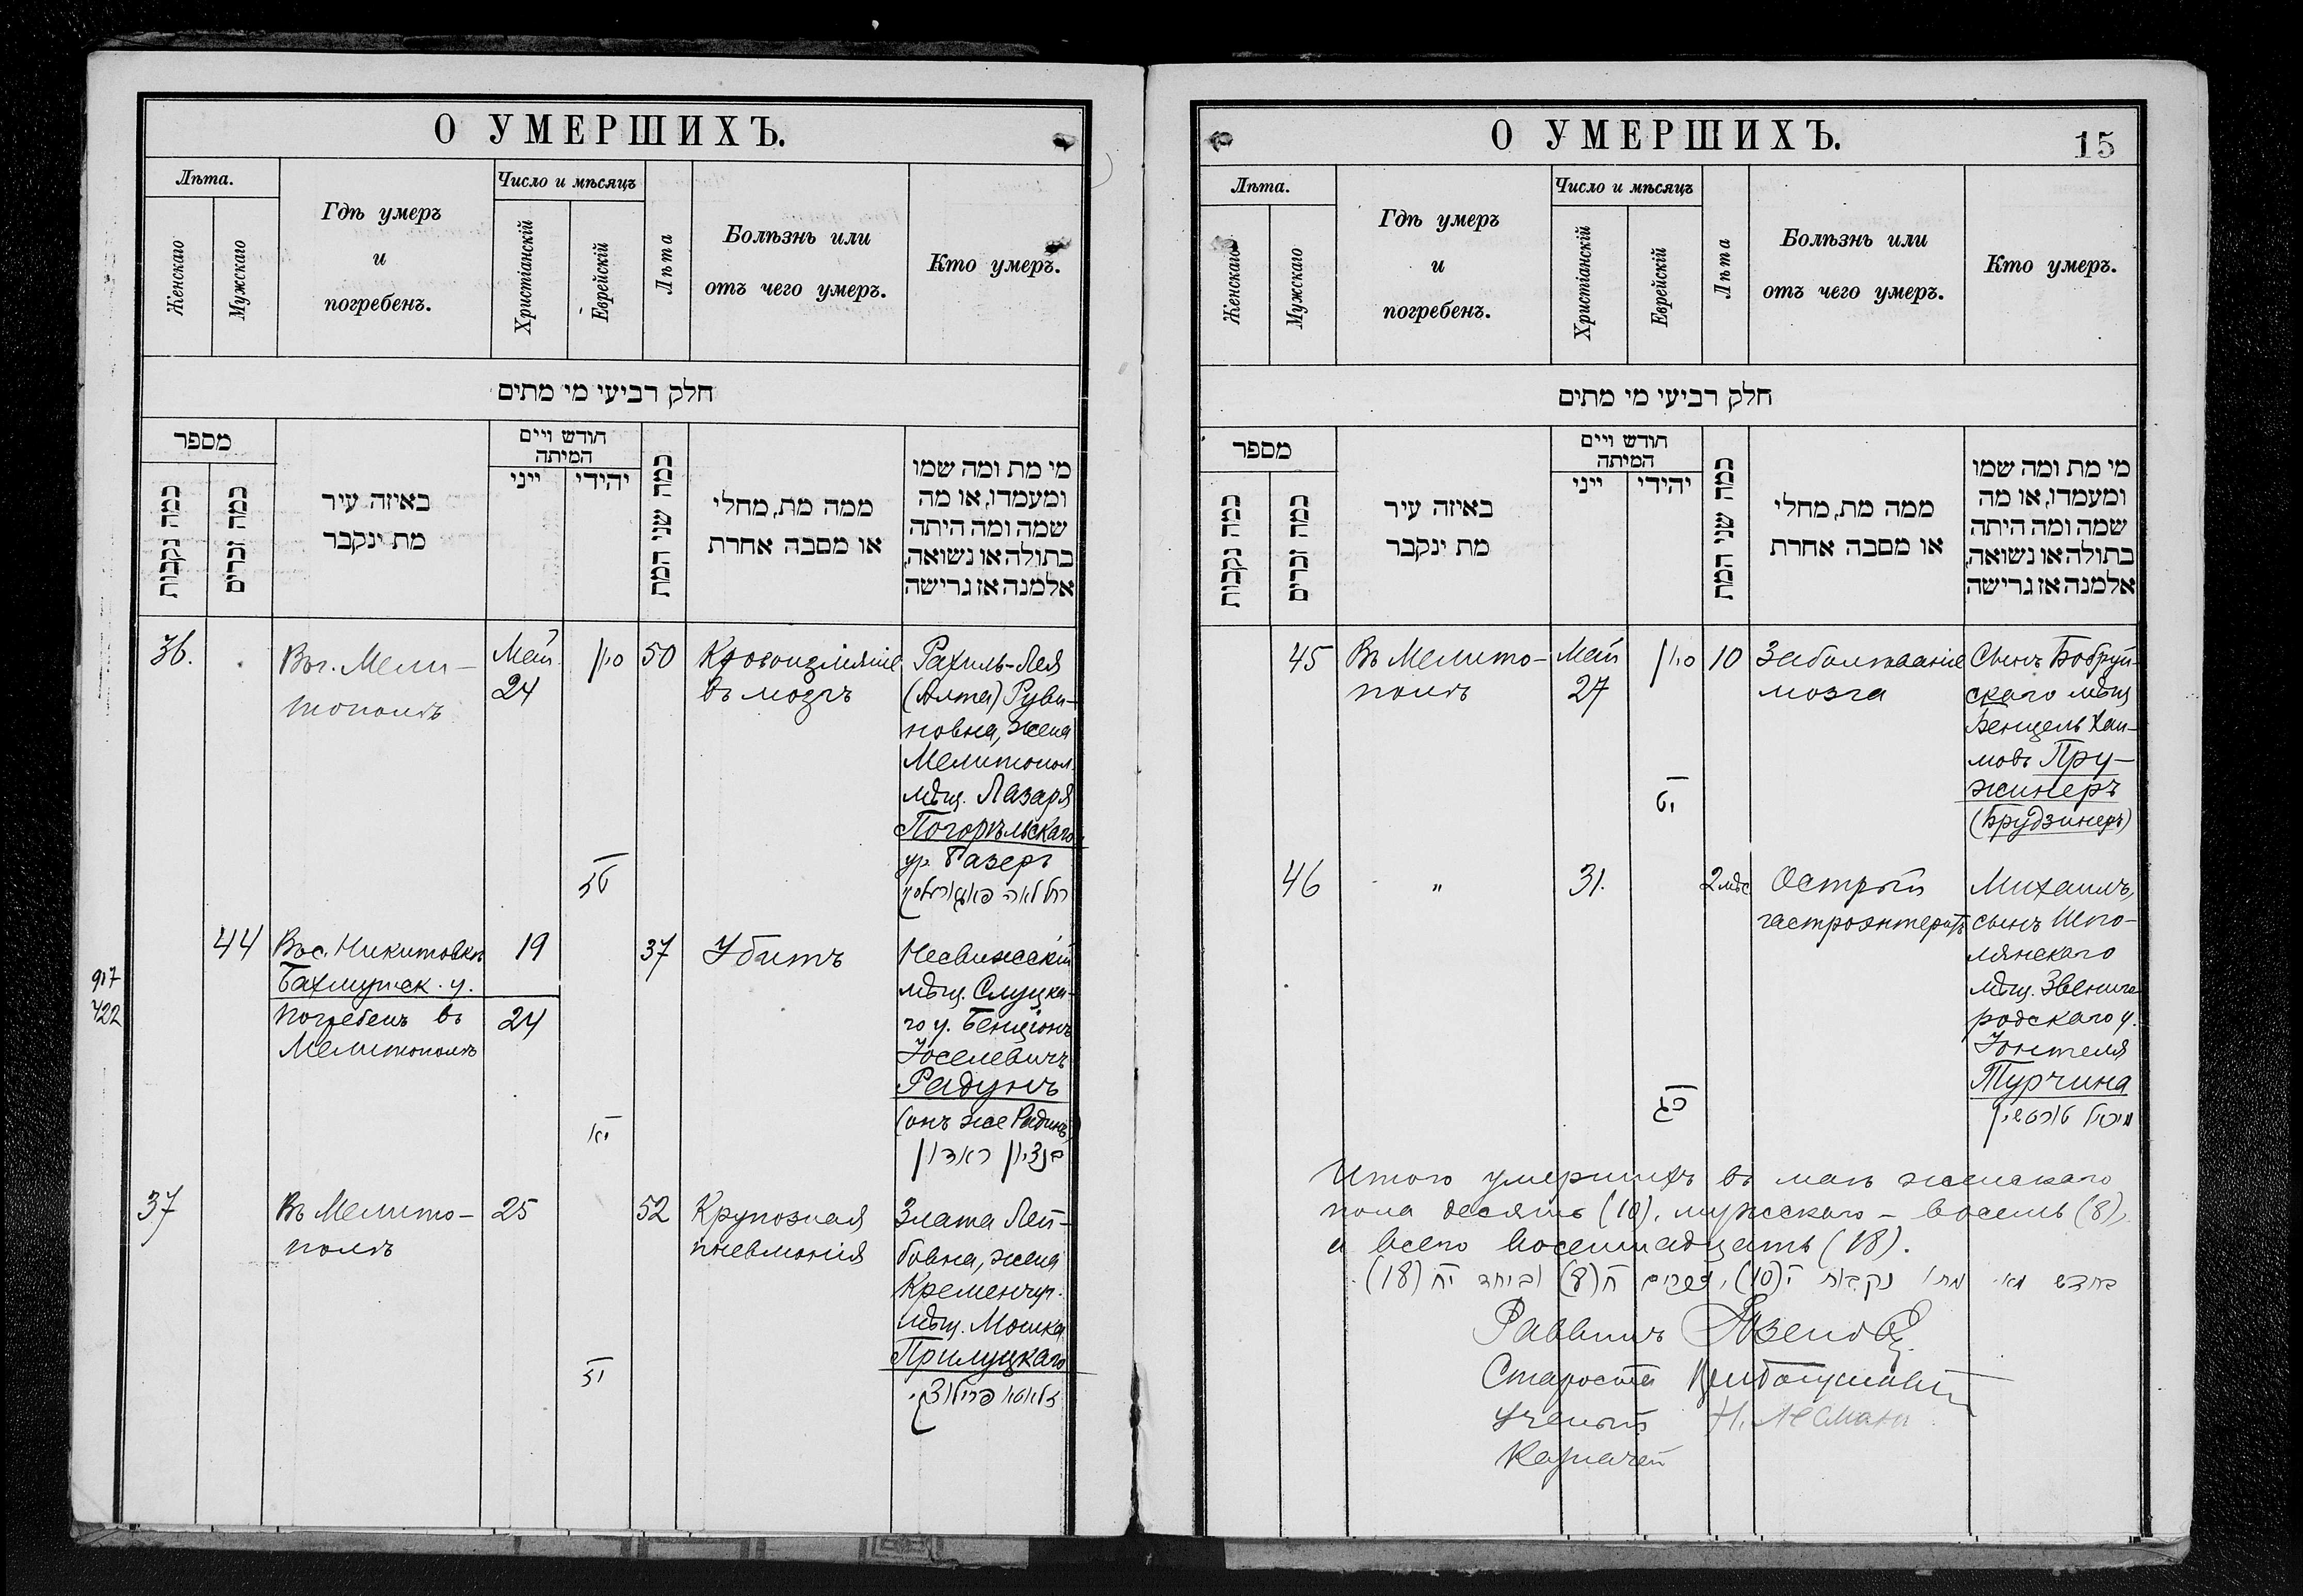 О УМЕРШИХЪ.
Лѣта.
Женскаго
Мужскаго
Гдѣ умеръ
и
погребенъ.
Число и мѣсяцъ
Христіанскій
Еврейскій
Лѣта
Болѣзнь или
отъ чего умеръ.
Кто умеръ.
חלק רביעי מי מתים
מספר
כמה נקבות
כמה זכרים
באיזה עיר
מת ינקבר
חודש ויים
המיתה
ייני
יהידי
כמה שני המת
ממה מת, מחלי
או מסבה אחרת
מי מת ומה שמו
ומעמדו, או מה
שמה ומה היתה
בתולה או נשואה,
אלמנה אז גרישה
36.
Въ г. Мели-
тополѣ
Май
24
סיון
50
Кровоизліяніе
въ мозгъ
Рахиль-Лея
(Алта) Руви-
новна, жена
Мелитопол.
мѣщ. Лазаря
Погорѣльскаго
ур. Газеръ
44
Въ с. Никитовкѣ
Бахмутск. у.
погребенъ въ
Мелитополѣ
19
24
37
Убитъ
Несвижскій
мѣщ. Слуцка-
го у. Бенціонъ
Іоселевичъ
Радунъ
(онъ же Радинъ)
בנציון ראדין
917
422
37
Въ Мелито-
полѣ
25
52
Крупозная
пневмонія
Злата Лей-
бовна, жена
Кременчуг.
мѣщ. Мошка
Прилуцкаго
О УМЕРШИХЪ.
15
Лѣта.
Женскаго
Мужскаго
Гдѣ умеръ
и
погребенъ.
Число и мѣсяцъ
Христіанскій
Еврейскій
Лѣта
Болѣзнь или
отъ чего умеръ.
Кто умеръ.
חלק רביעי מי מתים
מספר
כמה נקבות
כמה זכרים
באיזה עיר
מת ינקבר
חודש ויים
המיתה
ייני
יהידי
כמה שני המת
ממה מת, מחלי
או מסבה אחרת
מי מת ומה שמו
ומעמדו, או מה
שמה ומה היתה
בתולה או נשואה,
אלמנה אז גרישה
45
Въ Мелито-
полѣ
Май
27
סיון
10
Заболѣваніе
мозга
Сынъ Бобруй-
скаго мѣщ
Бенцель Хаи-
мовъ Пру-
жинеръ
(Брудзинеръ)
46
"
31.
2 мѣс
Острый
гастроэнтеритъ
Михаилъ,
сынъ Шпо-
лянскаго
мѣщ. Звениго-
родскаго у.
Іонтеля
Турчина
כג
Итого умершихъ въ маѣ женскаго
пола десять (10), мужскаго - восемь (8),
а всего восемнадцать (18).
בחדש מאי מתו נקבות י(10), זכרים ח(8) וביחד יח (18)
Раввинъ
Староста
Ученый
Казначей